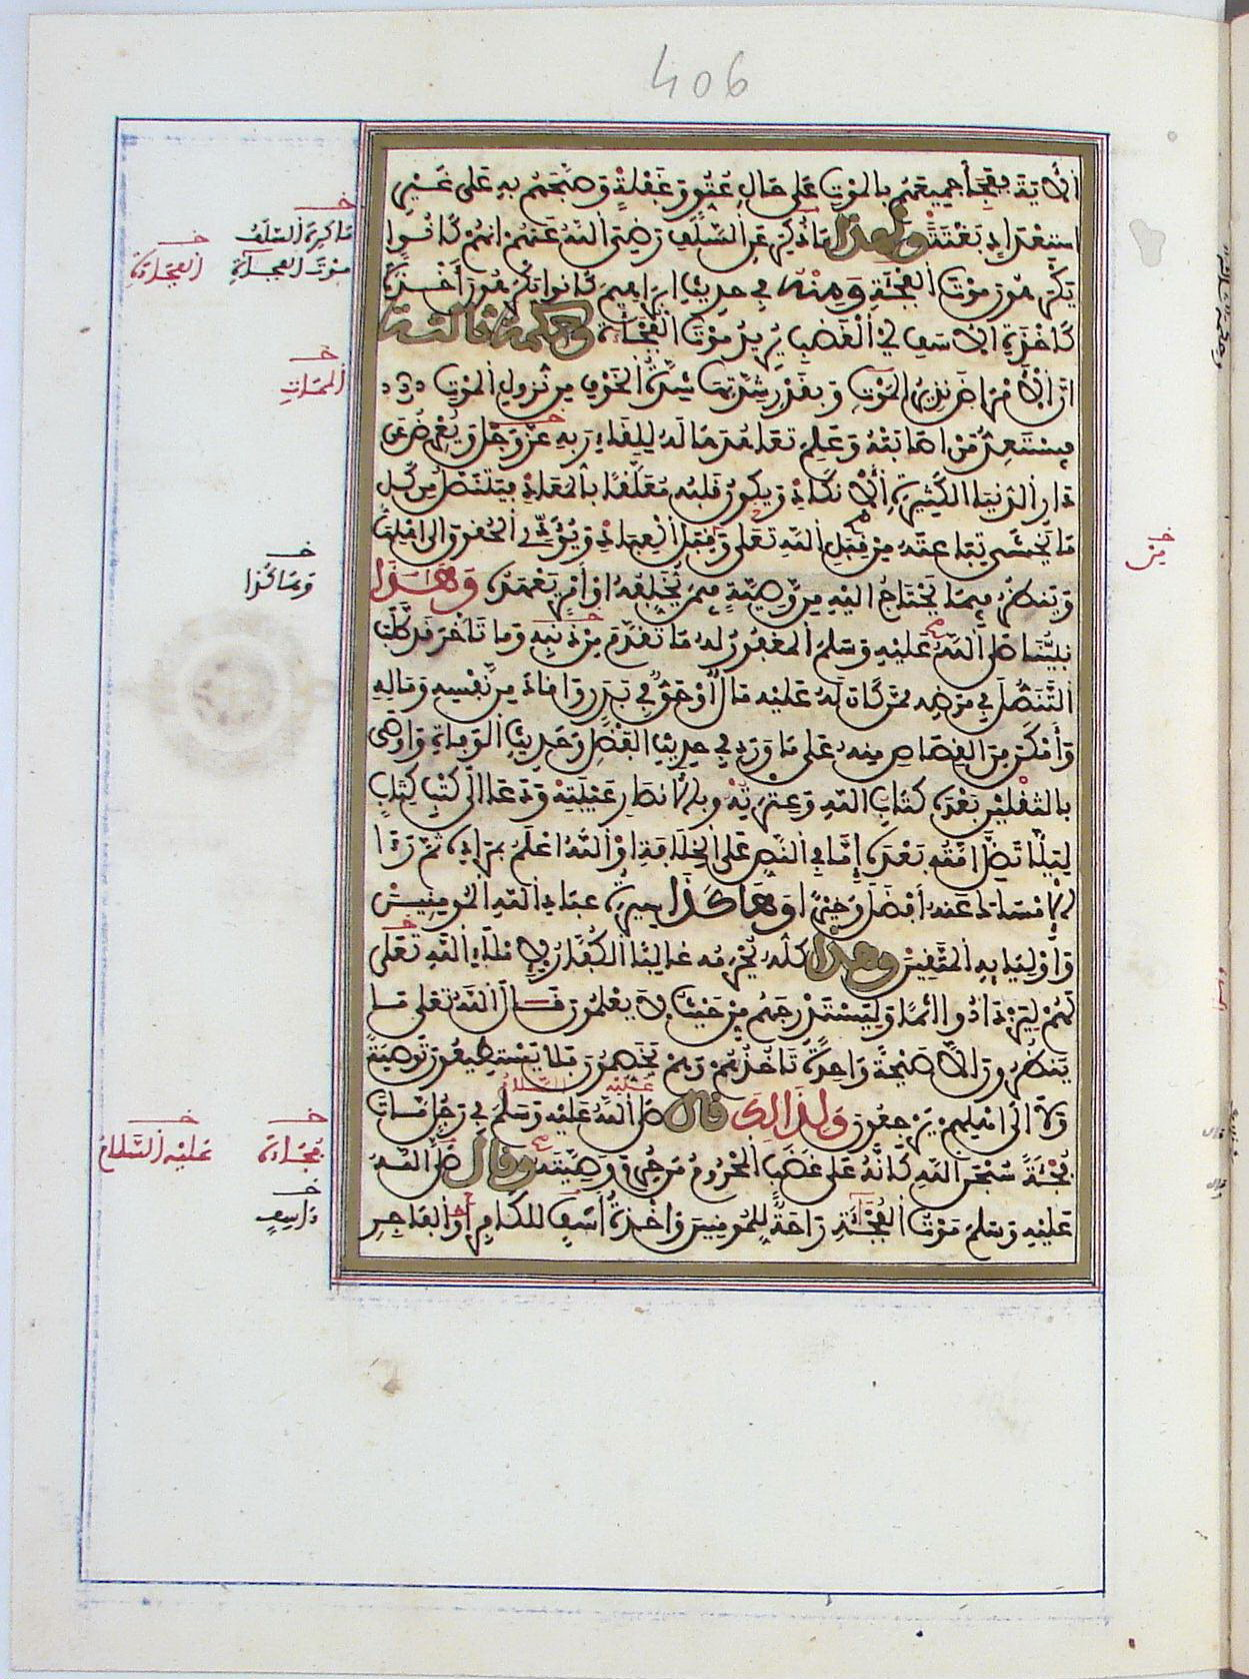 406
الآية ففجأ جميعهم بالموت على حال عتو وغفلة وصبحهم به على غير
استعداد بغتة ولهذا ما ذكر عن السلف رضي الله عنهم انهم كانوا
يكرهون موت الفجأة ومنه في حديث ابراهيم كانوا يكرهون أخذة
كأخذة الاسف اي الغضب يريد موت الفجأة وحكمة ثالثة
ان الامراض نذير الموت وبقدر شدتها شدة الخوف من نزول الموت
فيستعد من اصابته وعلم تعاهدها له للقاء ربه عز وجل ويعرض عن
دار الدنيا الكثيرة الانكاد ويكون قلبه معلقا بالمعاد فيتنصل من كل
ما يخشى تباعته من قبل الله تعلى وقبل العباد ويؤدي الحقوق الى اهلها
وينظر فيما يحتاج اليه من وصية فيمن يخلفه او أمر يعهده وهاذا
نبينا صلى الله عليه وسلم المغفور له ما تقدم من ذنبه وما تأخر قد طلب
التنصل في مرضه ممن كان له عليه مال أو حق في بدن واقاد من نفسه وماله
وأمكن من القصاص منه على ما ورد في حديث الفضل وحديث الوفاة واوصى
بالثقلين بعده كتاب الله وعترته وبالانصار عيبته ودعا الى كتب كتاب
ليلا تضل امته بعده إما في النص على الخلافة او الله اعلم بمراده ثم رءا
الامساك عنه أفضل وخيرا وهاكذا سيرة عباد الله المومنين
واوليايه المتقين وهذا كله يحرمه غالبا الكفار لاملاء الله تعلى
لهم ليزدادوا اثما وليستدرجهم من حيث لا يعلمون قال الله تعلى ما
ينظرون الا صيحة واحدة تأخذهم وهم يخصمون فلا يستطيعون توصية
ولا الى اهلهم يرجعون ولذالك قال صلى الله عليه وسلم في رجل مات
عليه السلام
فجأة سبحن الله كأنه على غضب المحروم من حرم وصيته وقال صلى الله
عليه وسلم موت الفجأة راحة للمومنين وأخذة أسف للكافر أو الفاجر
ما كره السلف
موت الفجاءة
الفجاءة
الممات
من
وهاكذا
فجاءة
عليه السلام